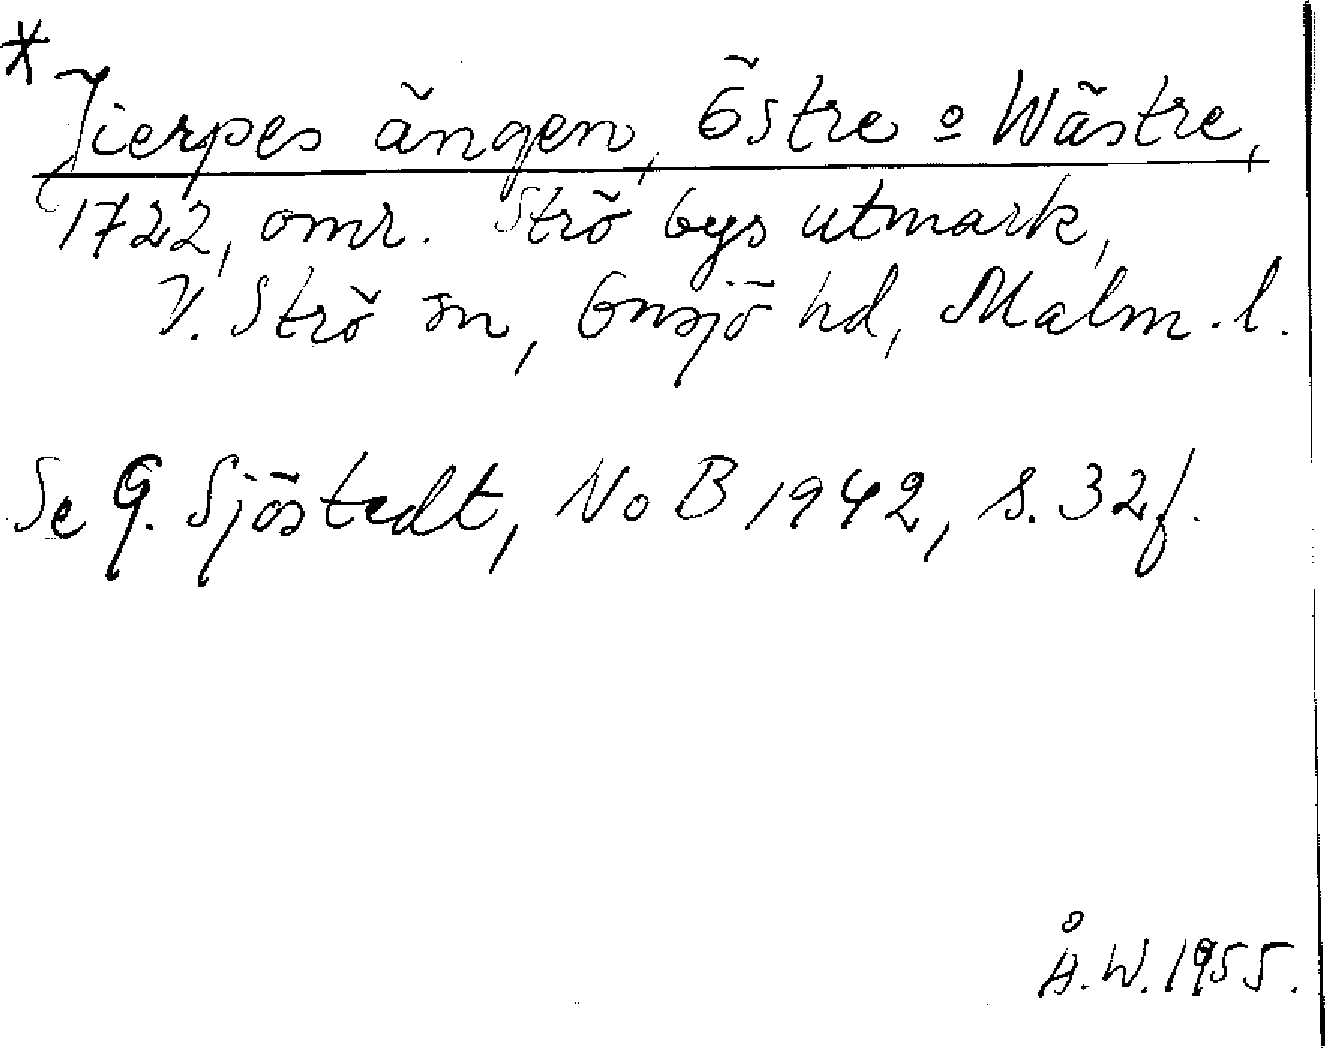 * Jierpes ängen, Östre o Wästre,
1722, omr. Strö bys utmark,
V. Strö sn, Onsjö hd, Malm. l.
Se G. Sjöstedt, NoB 1942, s. 32 f.
Å.W. 1955.